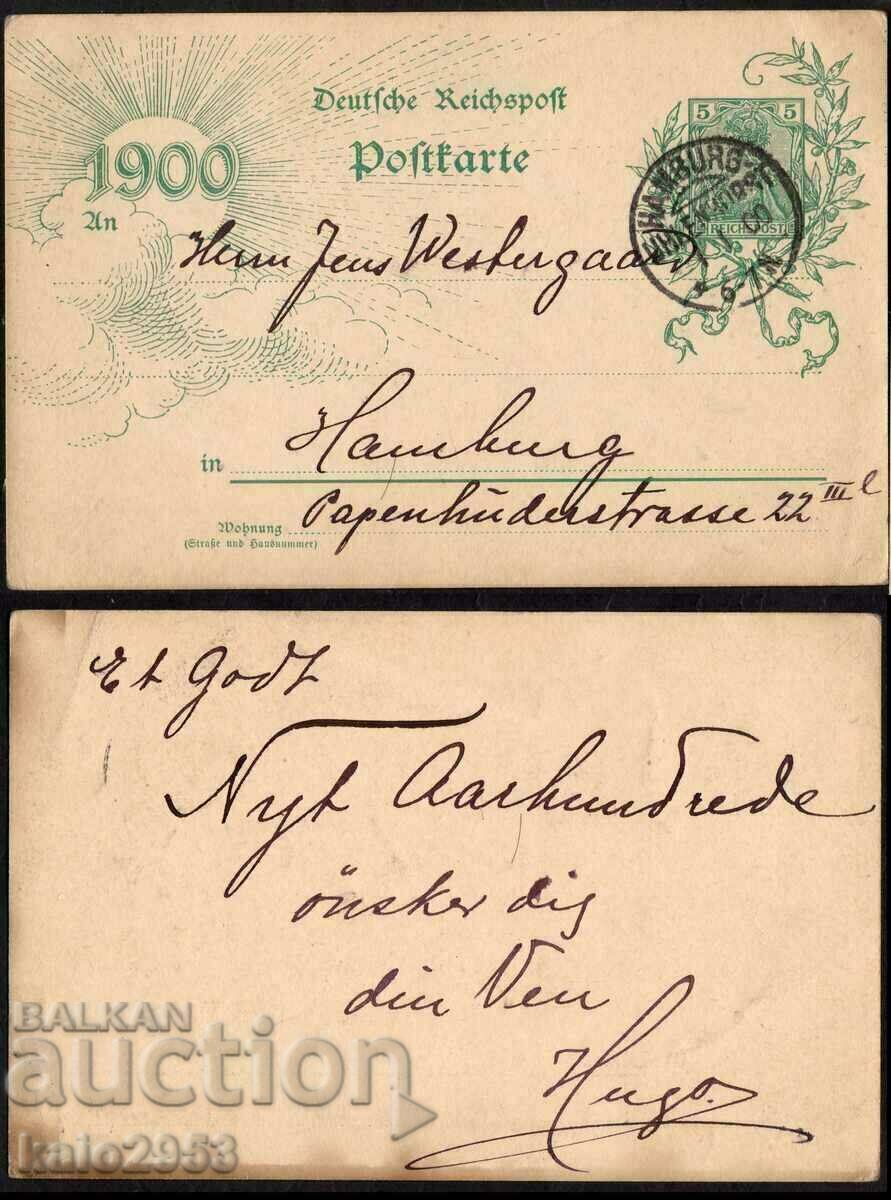 1900
Deutsche Reichspost
Postkarte
5 5
REICHSPOST
HAMBURG
00
6-7N
An Herrn Jens Westergaard
in Hamburg
Wohnung Papenhuderstrasse 22 III l
(Straße und Hausnummer)
Et Godt
Nyt Aarhundrede
önsker dig
din Ven
Hugo.
BALKAN
auction
kaio2953